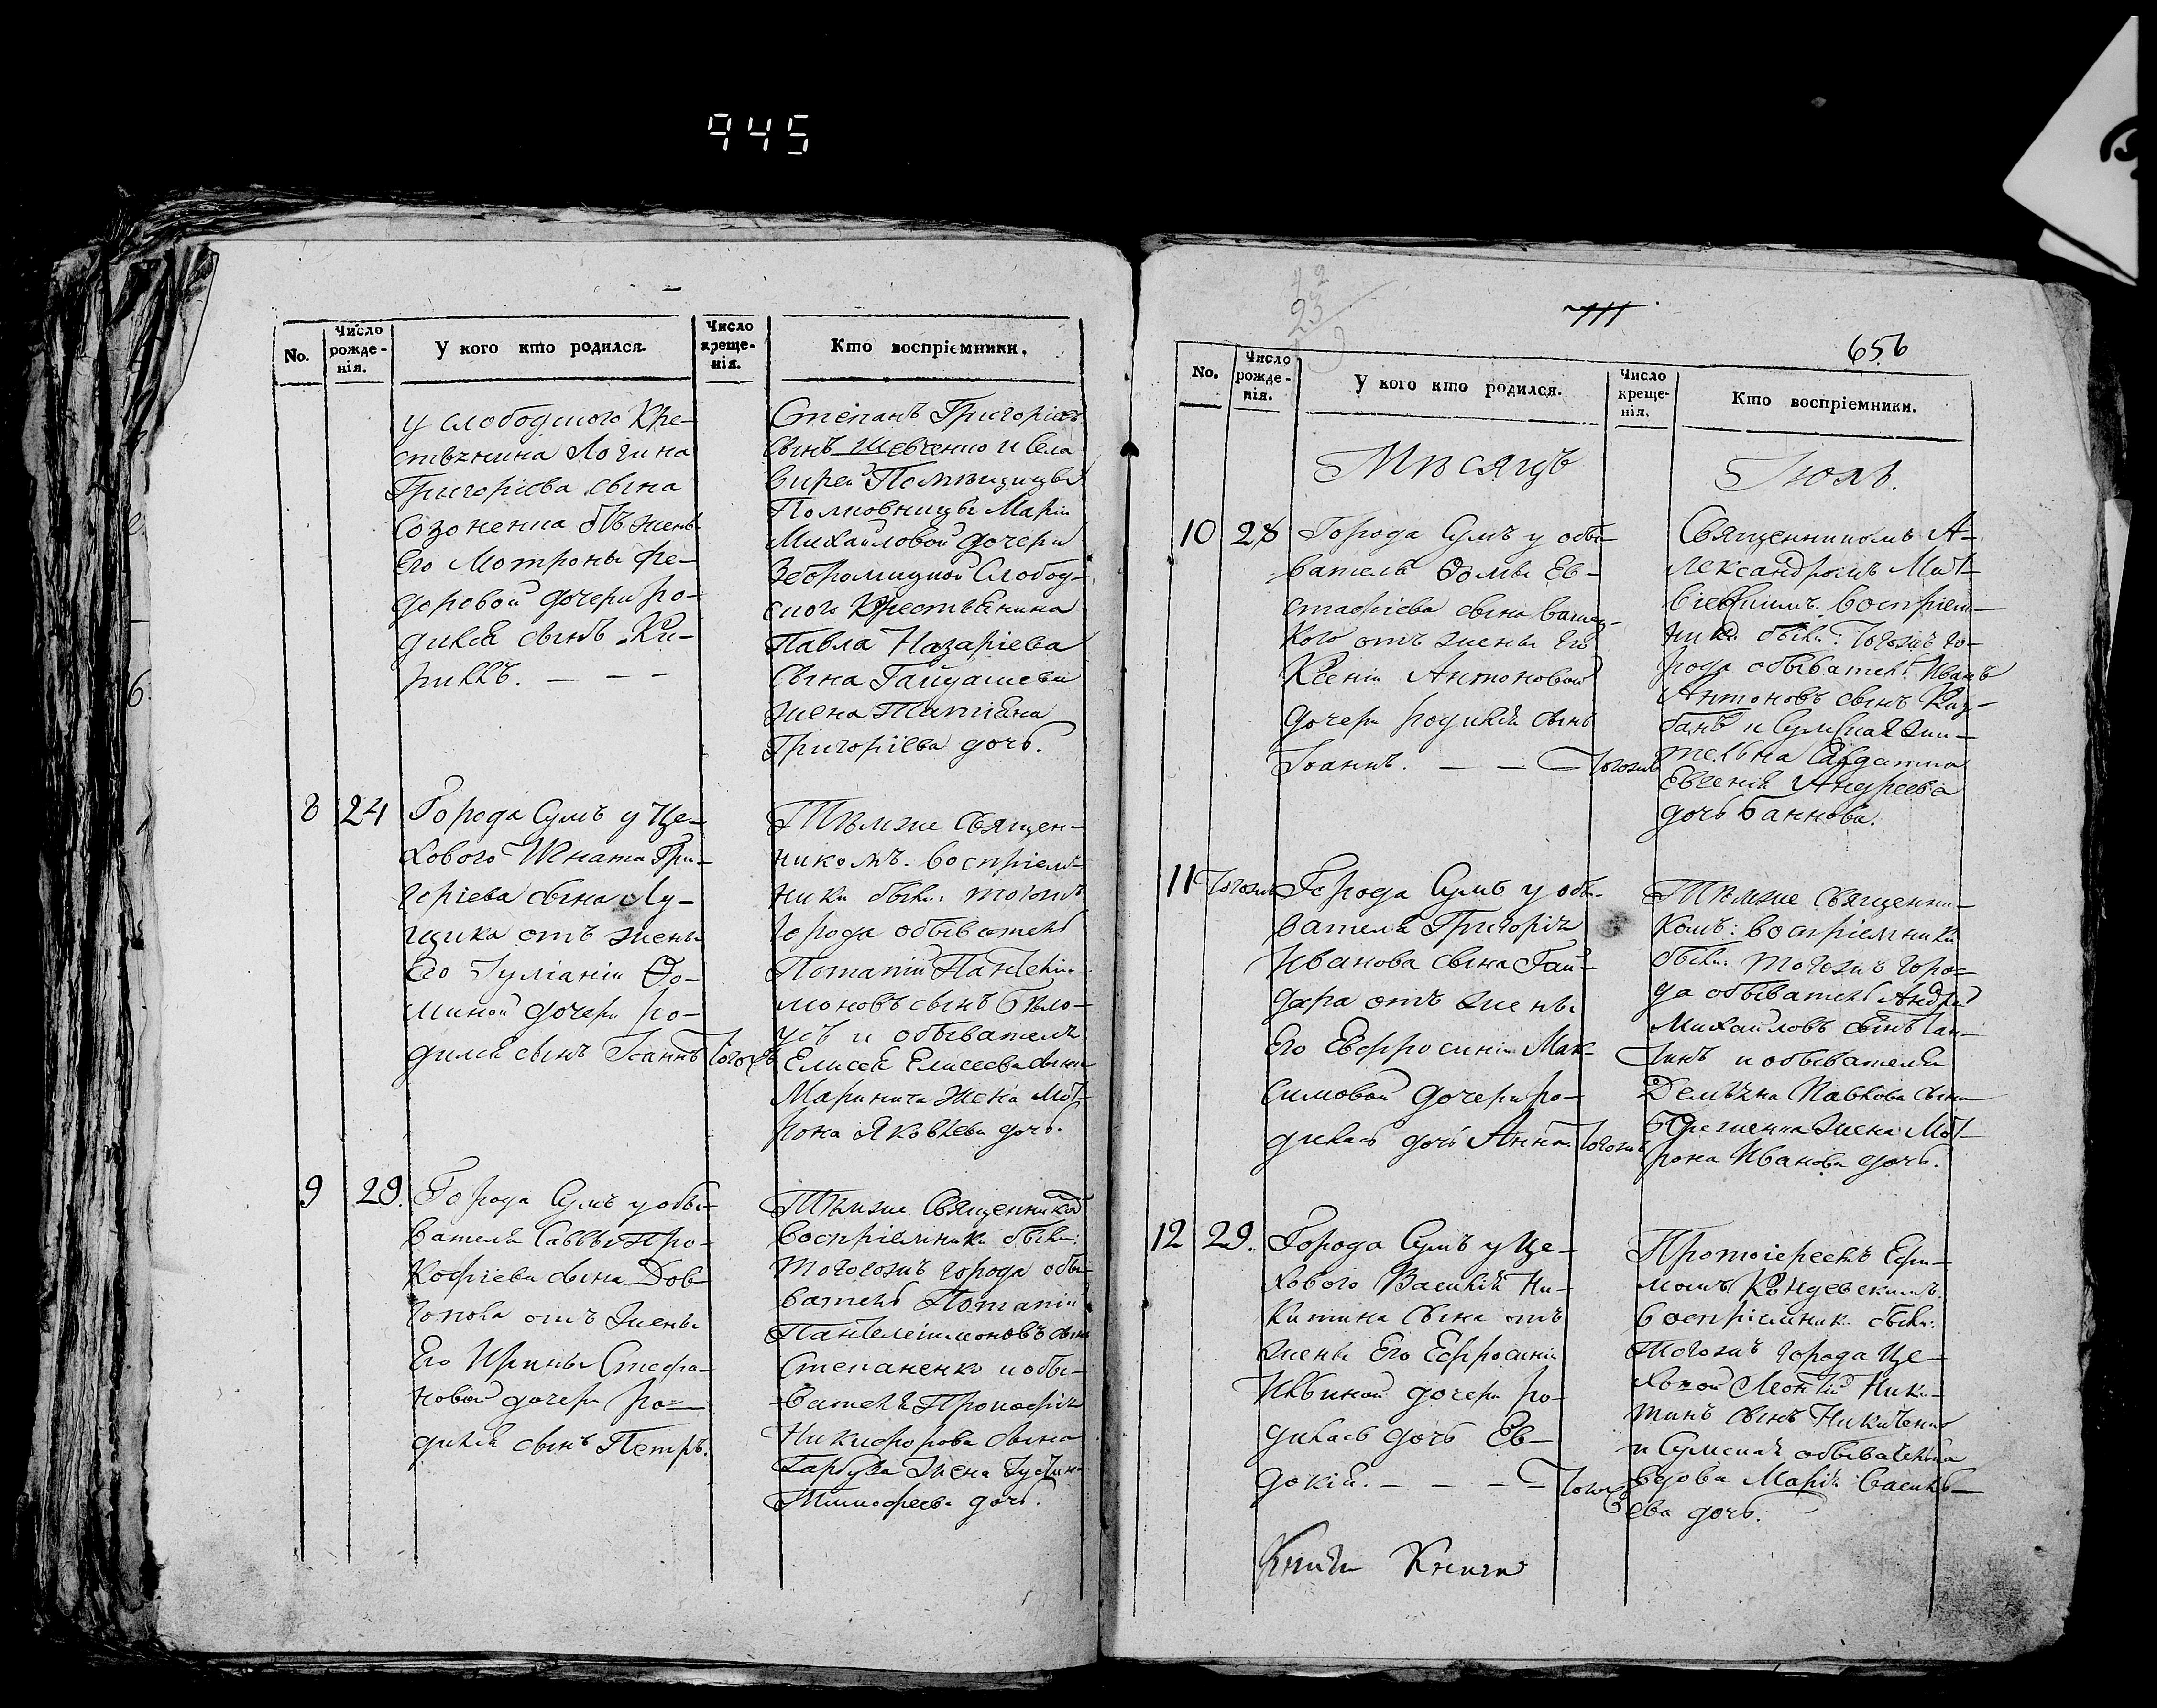 945
No.
Число рожде- нія.
У кого кто родился.
Число креще- нія.
Кто воспріемники.
у слободского Кре-
стьянина Логина
Григоріева сына
Созоненка отъ жены
Его Мотроны Фе-
доровой дочери ро-
дился сынъ Ки-
риллъ. — — —
Степанъ Григоріевъ
сынъ Шевченко и Села
Помѣщицы
Полковницы Маріи
Михайловой дочери
Слобод-
ского Крестьянина
Павла Назаріева
сына
жена Татіана
Григоріева дочь.
8 24 Города Сумъ у Це-
хового Игната Гри-
горіева сына Лу-
щика отъ жены
Его Іуліаніи Ѳо-
миной дочери ро-
дился сынъ Іоаннъ Тогожъ
Тѣмже Священ-
никомъ. воспріем-
ники были: тогожъ
города обыватель
Потапій Пантелій-
моновъ сынъ Бѣло-
усъ и обывателя
Елисея Елисеева сына
Маринича жена Мот-
рона Яковлева дочь.
9 29. Города Сумъ у обы-
вателя Саввы Про-
кофіева сына Дов-
гопола отъ жены
Его Ирины Стефа-
новой дочери ро-
дился сынъ Петръ.
Тѣмже Священникомъ
воспріемники были:
тогожъ города обы-
ватель Потапій
Пантелеімоновъ сынъ
Степаненко и обы-
вателя Прокофія
Никифорова сына
Гарбуза жена Іустина
Тимофеева дочь.
23
111
656
No.
Число рожде- нія.
У кого кто родился.
Число креще- нія.
Кто воспріемники.
Мѣсяцъ
Іюль.
10 28 Города Сумъ у обы-
вателя Ѳомы Ев-
стафіева сына
кого отъ жены Его
Ксеніи Антоновой
дочери родился сынъ
Іоаннъ. — — — Тогожъ
Священникомъ А-
лександромъ Мат-
воспріем-
ники были: Тогожъ го-
рода обыватель Иванъ
Антоновъ сынъ Каз-
банъ и Сумская жи-
тельна Салдатка
Евгенія Андреева
дочь Баннова.
11 Тогожъ Города Сумъ у обы-
вателя Григорія
Иванова сына Гай-
дара отъ жены
Его Евфросиніи Мак-
симовой дочери ро-
дилась дочь Анна. Тогожъ
Тѣмже священни-
комъ: воспріемники
были: тогожъ горо-
да обыватель Андрей
Михайловъ сынъ Ган-
жинъ и обывателя
Демьяна Павлова сына
жена Мот-
рона Иванова дочь.
12 29. Города Сумъ у Це-
хового Василія Ни-
китина сына отъ
жены Его Ефросиніи
Ильиной дочери ро-
дилась дочь Ев-
докія. — — — Тогожъ
Протоіереемъ Ефи-
момъ
воспріемники были:
тогожъ города Це-
ховой Леонтій Ники-
тинъ сынъ Никитенко
и Сумская обывателька
вдова Марія Василь-
ева дочь.
Книги